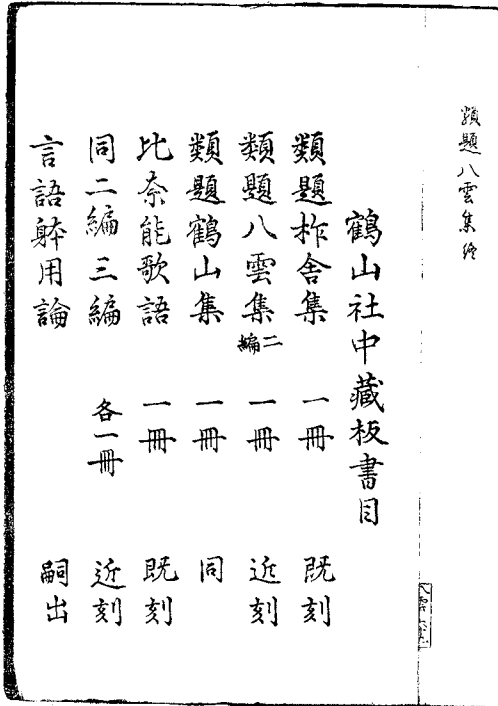 類題八雲集終
鶴山社中藏板書目
類題柞舎集 一冊 既刻
類題八雲集二編 一冊 近刻
類題鶴山集 一冊 同
比奈能歌語 一冊 既刻
同二編三編 各一冊 近刻
言語躰用論 嗣出